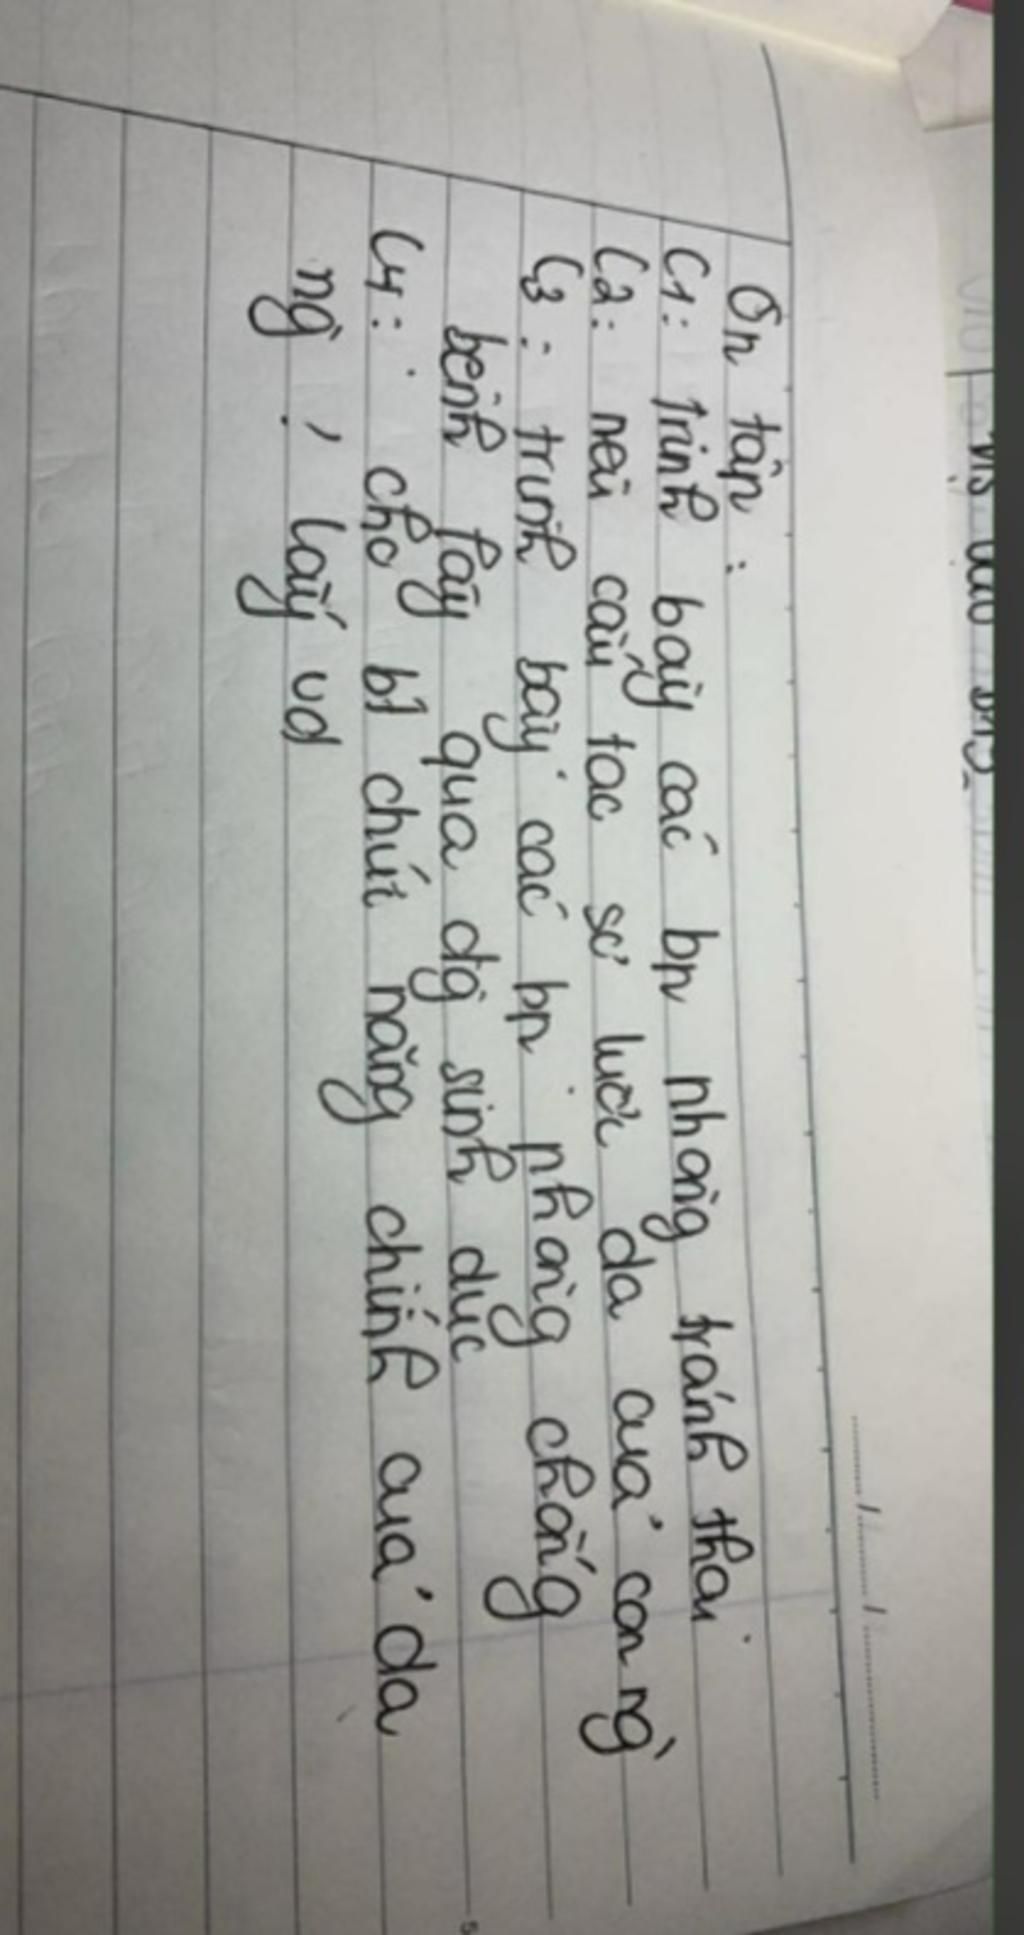 Ôn tập :
C1: trình bày các bp phòng tránh thai
C2: nêu cấu tạo sơ lược da của con ng`
C3: trình bày các bp phòng chống
bệnh lây qua đg sinh dục
C4: cho b1 chức năng chính của da
ng`, lấy vd